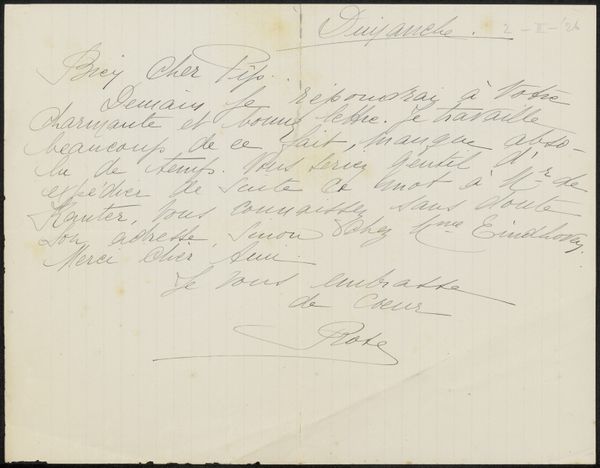 Dimanche. 2-II-'26
Bien cher Pip..
Demain je répondrai à votre
charmante et bonne lettre. Je travaille
beaucoup de ce fait, manque abso-
lu de temps. Vous seriez gentil d'
expédier de suite ce mot à Mr de
Kanter, vous connaissez sans doute
son adresse, sinon chez Mme Eindhoven.
Merci cher Ami.
Je vous embrasse
de coeur
Rose